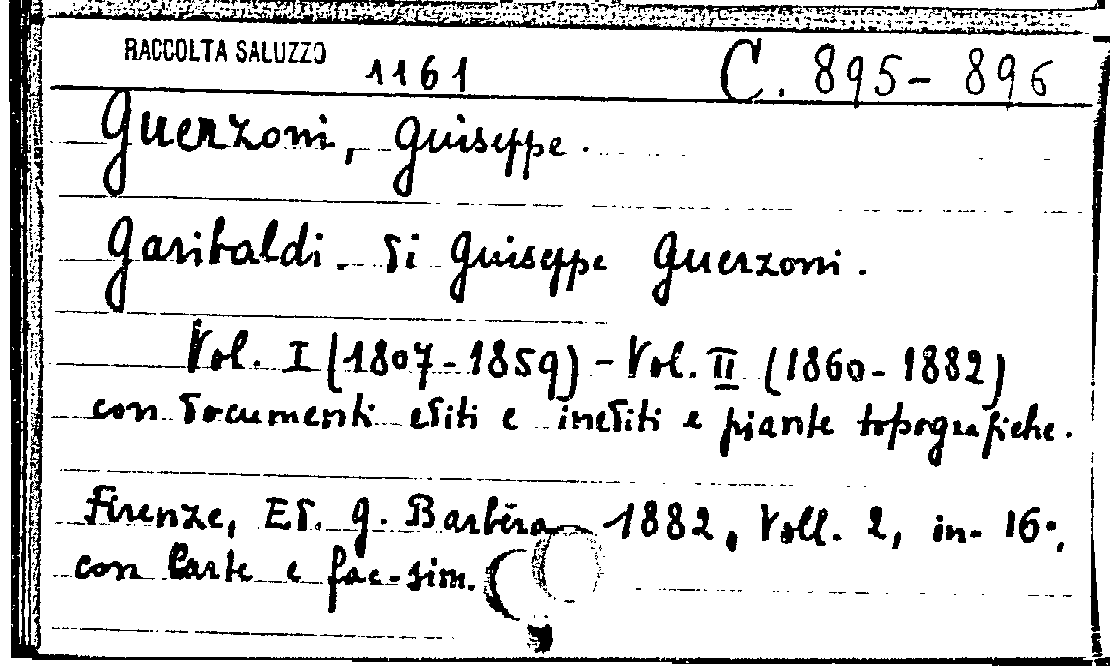 RACCOLTA SALUZZO 1161 C. 895-896
Guerzoni, Giuseppe.
Garibaldi. di Giuseppe Guerzoni.
Vol. I (1807-1859) - Vol. II (1860-1882)
con documenti editi e inediti e piante topografiche.
Firenze, Ed. G. Barbèra 1882, Voll. 2, in-16°,
con Carte e fac-sim.